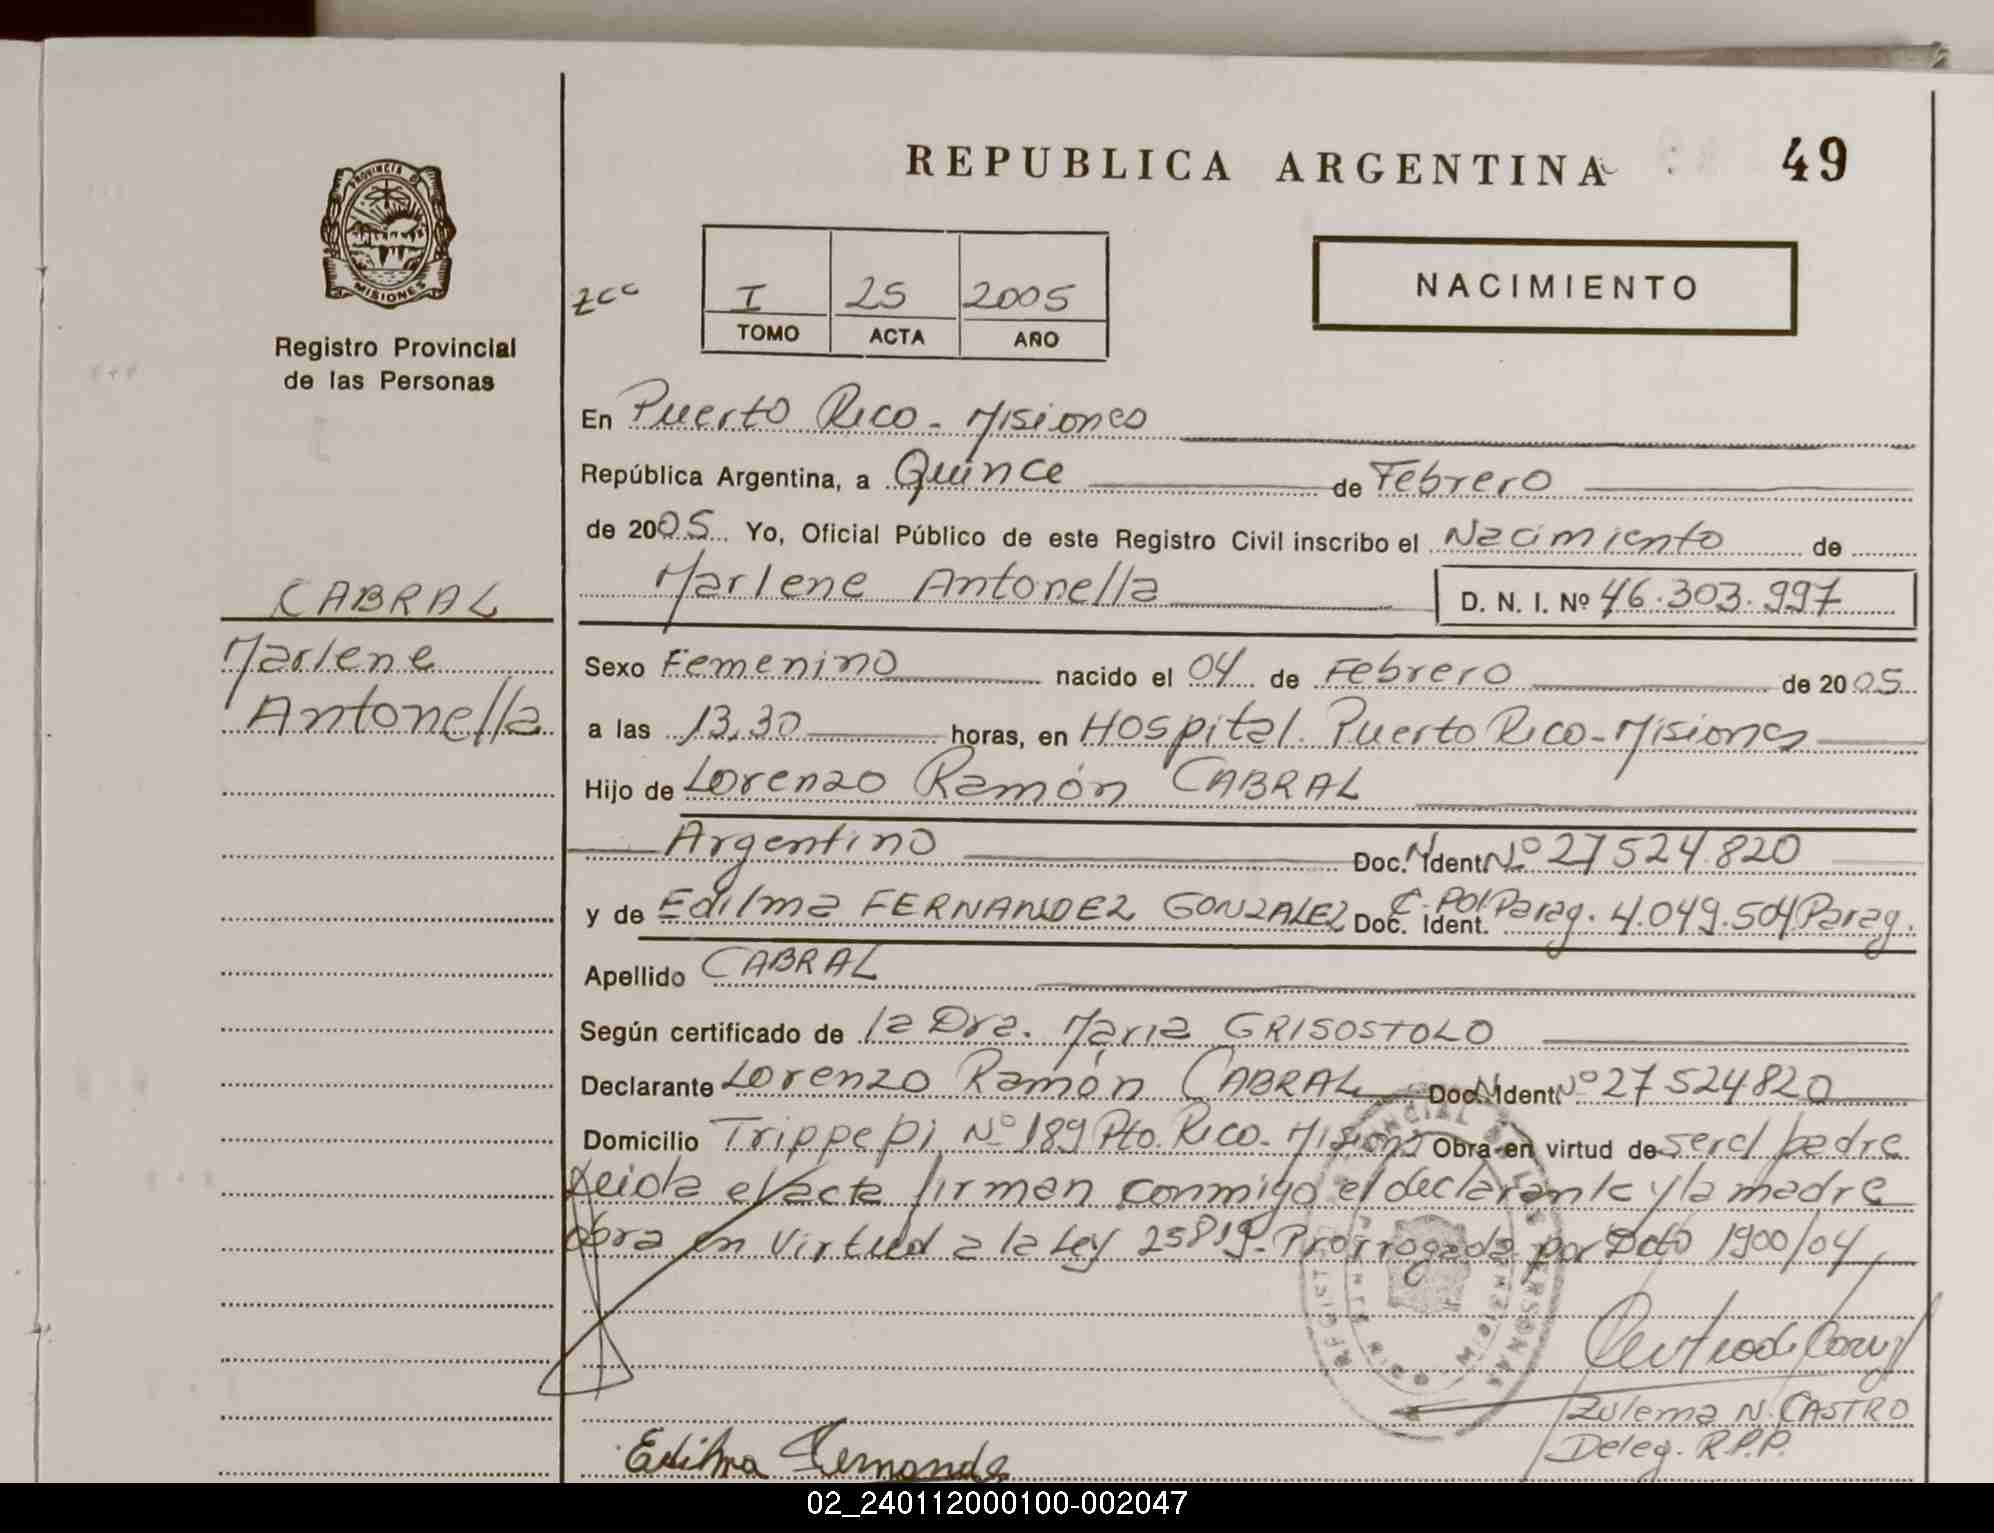 REPUBLICA ARGENTINA
49
PROVINCIA DE
MISIONES
Registro Provincial
de las Personas
zcc
I 25 2005
TOMO ACTA AÑO
NACIMIENTO
En Puerto Rico - Misiones
República Argentina, a Quince de Febrero
de 2005 Yo, Oficial Público de este Registro Civil inscribo el Nacimiento de
Marlene Antonella D. N. I. Nº 46.303.997
CABRAL
Marlene
Antonella
Sexo Femenino nacido el 04 de Febrero de 2005
a las 13,30 horas, en Hospital. Puerto Rico - Misiones
Hijo de Lorenzo Ramón CABRAL
Argentino Doc. N. Ident. Nº 27524.820
y de Edilma FERNANDEZ GONZALEZ Doc. Ident. C. Pol. Parag. 4.049.504 Parag.
Apellido CABRAL
Según certificado de la Dra. Maria GRISOSTOLO
Declarante Lorenzo Ramón CABRAL Doc. N. Ident. Nº 27524820
Domicilio Trippepi Nº 189 Pto. Rico - Misiones Obra en virtud de ser el padre
Leida el acta firman conmigo el declarante y la madre
obra en virtud a la Ley 25819. Prorrogada por Dcto 1900/04
Zulema N. CASTRO
Deleg. R.P.P.
Edilma Fernande
02_240112000100-002047